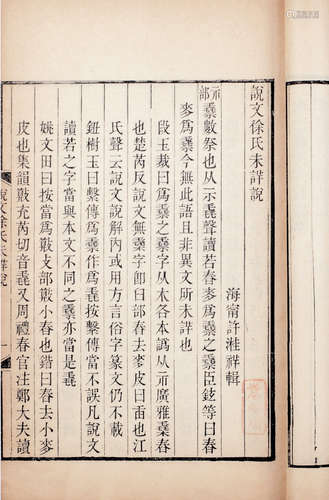 說文徐氏未詳說
海甯許溎祥輯
示部
䄟數祭也从示毳聲讀若舂麥爲䄟之䄟臣鉉等曰舂
麥爲䄟今無此語且非異文所未詳也
段玉裁曰爲䄟字从木各本譌从示廣雅舂
也楚芮反說文無字卽臼部舂去麥皮曰臿也江
氏聲云說文解內或用方言俗字篆文仍不載
鈕樹玉曰繫傳爲䄟作爲毳按繫傳當不誤凡說文
讀若之字當與本文不同之䄟亦當是毳
姚文田曰按當爲㪜攴部㪜小舂也鍇曰舂去小麥
皮也集韻㪜充芮切音毳又周禮春官注鄭大夫讀
說文徐氏未詳說
一